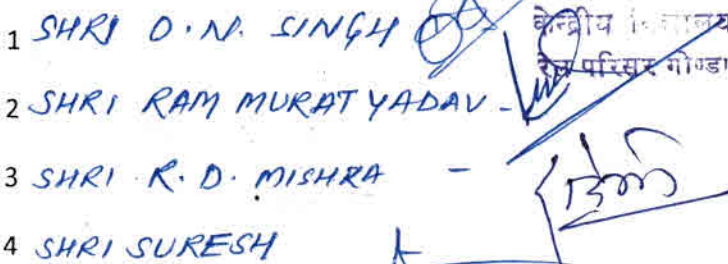 1 SHRI O.N. SINGH
केन्द्रीय
रेल परिसर गोण्डा
2 SHRI RAM MURAT YADAV -
3 SHRI R.D. MISHRA -
4 SHRI SURESH